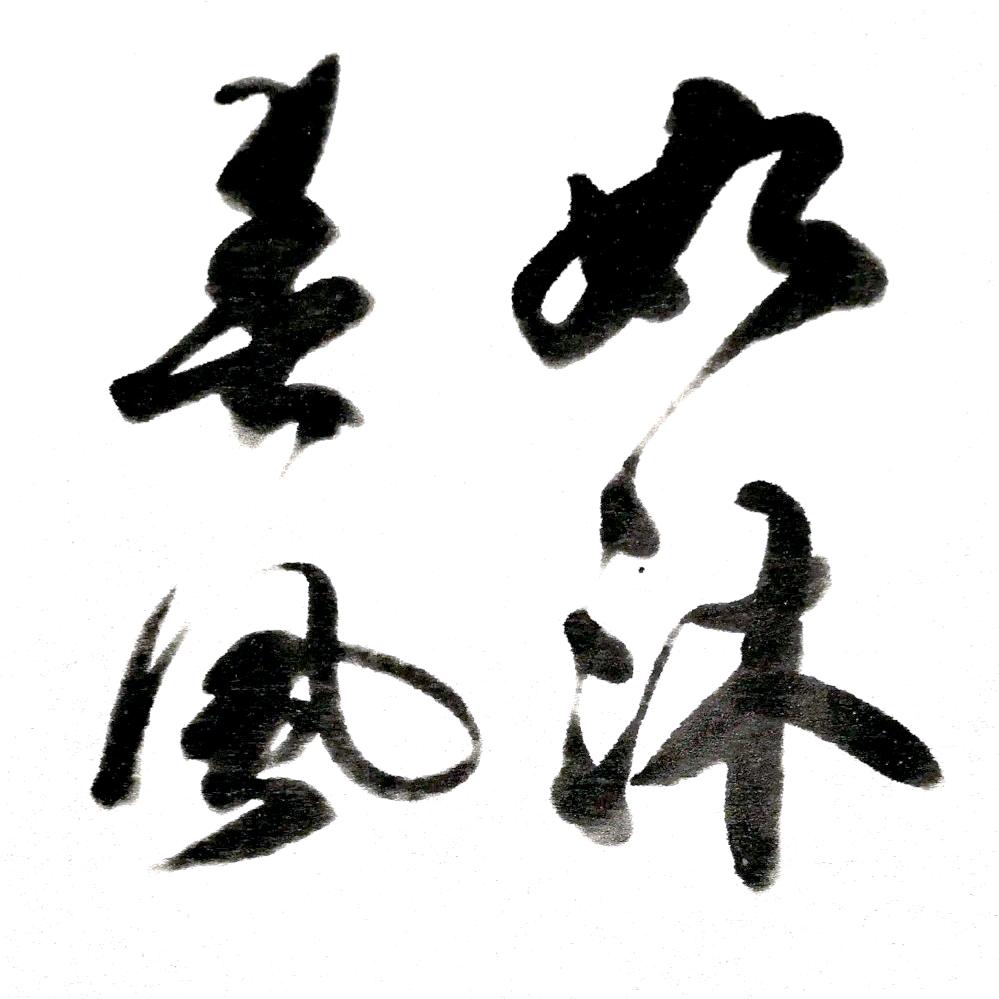 如沐
春風